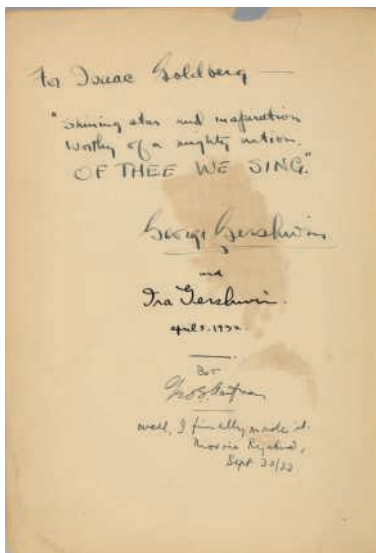 For Isaac Goldberg —
"Shining star and inspiration
Worthy of a mighty nation.
OF THEE WE SING."
George Gershwin
and
Ira Gershwin.
April 5. 1932.
But
Geo S Kaufman
well, I finally made it.
Morrie Ryskind,
Sept 30/33